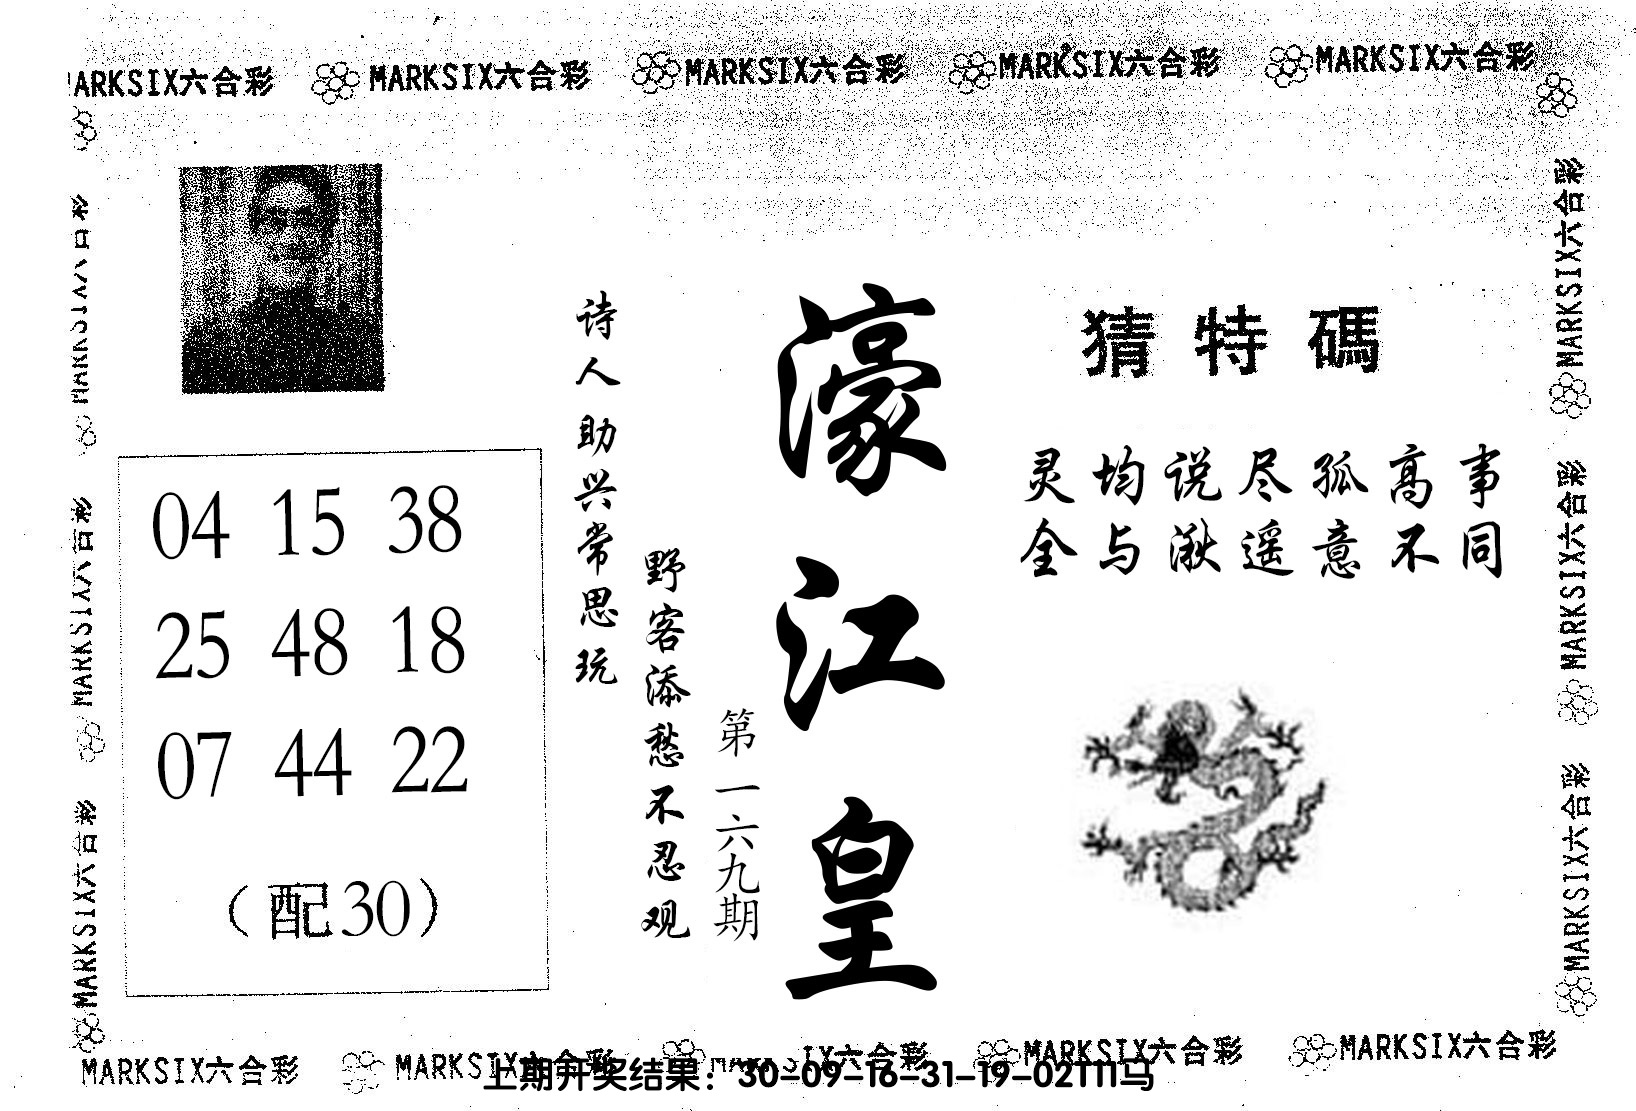 MARKSIX六合彩 MARKSIX六合彩 MARKSIX六合彩 MARKSIX六合彩 MARKSIX六合彩
猜特碼
灵均说尽孤高事
全与湫遥意不同
濠江皇
第一六九期
诗人助兴常思玩
野客添愁不忍观
04 15 38
25 48 18
07 44 22
（配30）
MARKSIX六合彩
MARKSIX六合彩
MARKSIX六合彩
MARKSIX六合彩
MARKSIX六合彩
MARKSIX六合彩
MARKSIX六合彩 MARKSIX六合彩 MARKSIX六合彩 MARKSIX六合彩
上期开奖结果：30-09-16-31-19-02T11马